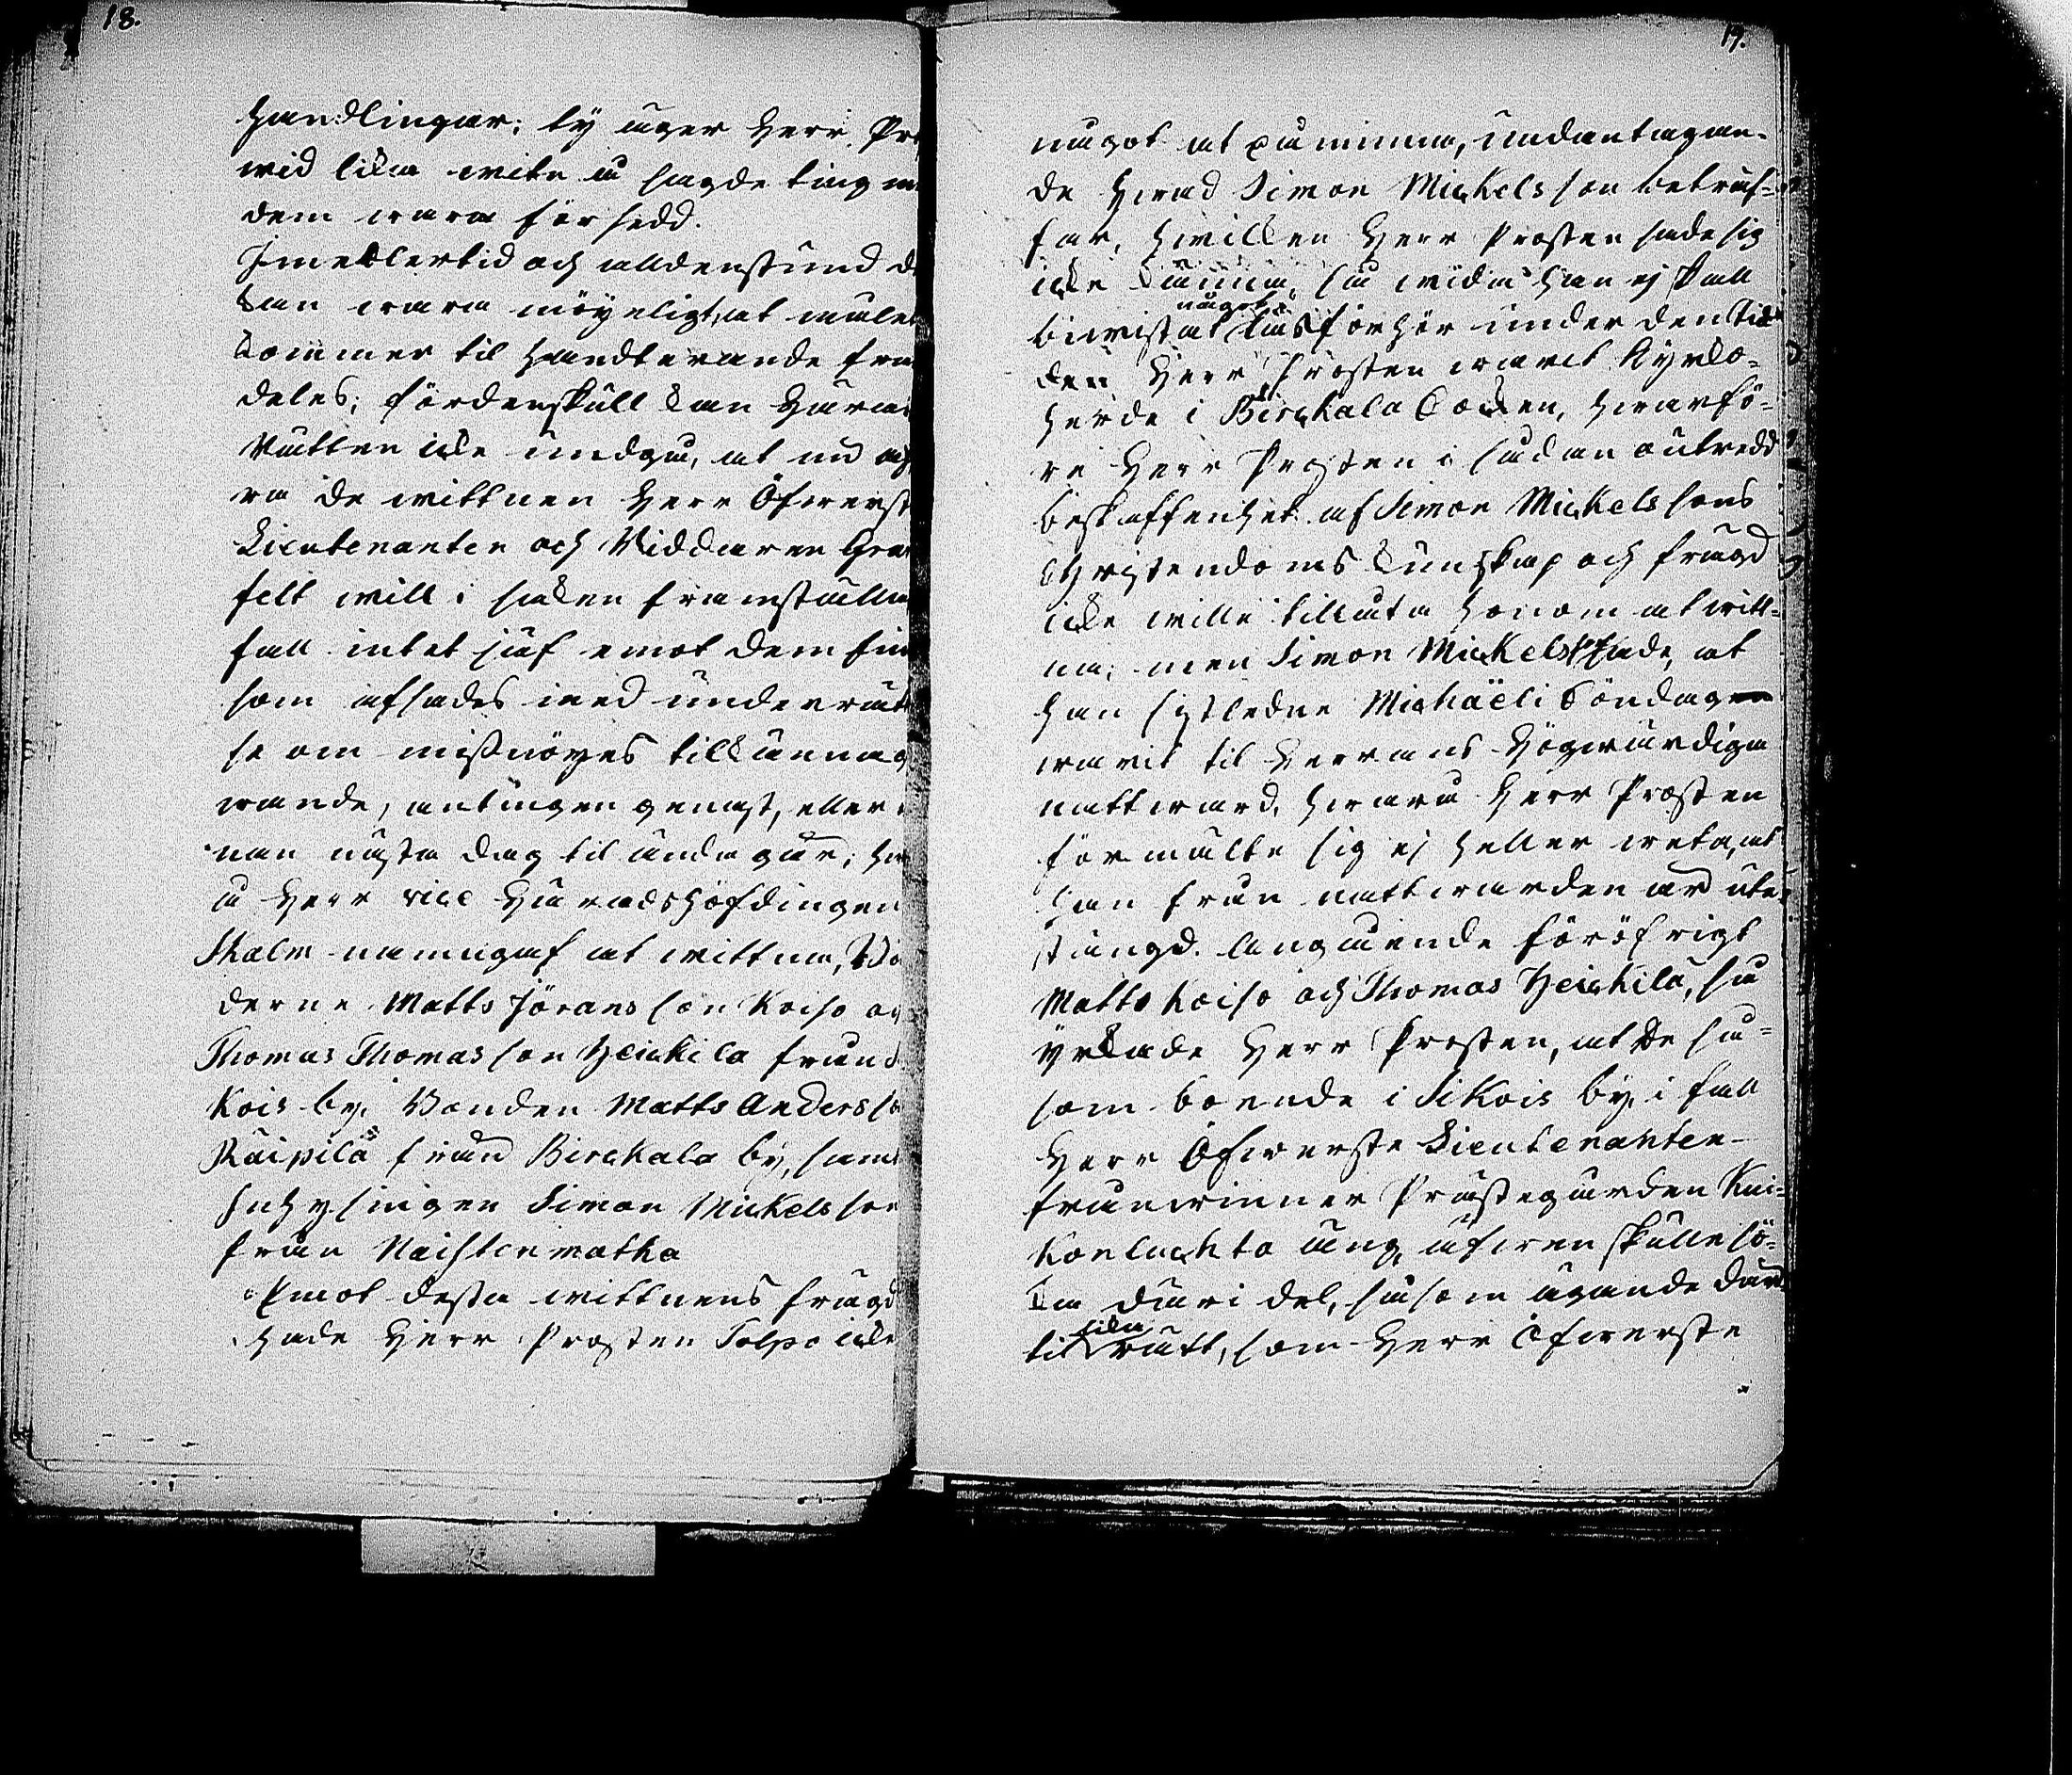 18.
handlingar; ty äger Herr Pro
wid lika wite å sagde ting m
dem wara försedd.
Imedlertid och alldenstund d
kan wara möyeligt, at målet
kommer til handterande fra
deles; fördenskull kan Härads
Rätten icke undgå, at nu af
ra de wittnen Herr Öfwerst
Lieutenanten och Riddaren Gra
felt will i saken framställa
fall intet jäf emot dem fin
som afsades med underrätt
se om missnöyes tillkännag
wande, antingen genast, eller i
nan nästa dag til ända går; hw
å Herr vice Häradshöfdingen
Skalm namngaf at wittna, Bö
derne Matts Jöransson Koiso och
Thomas Thomasson Heickilä från S
Kois by, Bonden Matts Anderss
Räipilä från Birckala by, samt
Inhysingen Simon Mickelsson
från Naistenmatka
Emot dessa wittnens frägd
hade Herr Prosten Tolpo icke
19.
något at påminna, undantagan-
de hwad Simon Mickelsson beträf-
far, hwilken Herr Prosten sade sig
icke känna, så wida han ej skall
biwistat något läsförhör under den tid
den Herr Prosten warit Kyrko-
herde i Birckala Socken, hwarfö-
re Herr Prosten i sådan outredd
beskaffenhet af Simon Mickelssons
Christendoms kunskap och frägd
icke wille tillåta honom at witt-
na; men Simon Mickelsson sade, at
han sistledne Michaëli Söndag
warit til Herrans Högwärdiga
nattward, hwarå Herr Prosten
förmälte sig ej heller weta, at
han från nattwarden är ute-
stängd. Angående föröfrigt
Matts Koiso och Thomas Heickilä, så
yrkade Herr Prosten, at de så-
som boende i Sikois by, i fall
Herr Öfwerste Lieutenanten
frånwinner Prästegården Kui-
konluchta äng, äfwen skulle sö-
ka däri del, såsom ägande där
til lika rätt, som Herr Öfwerste